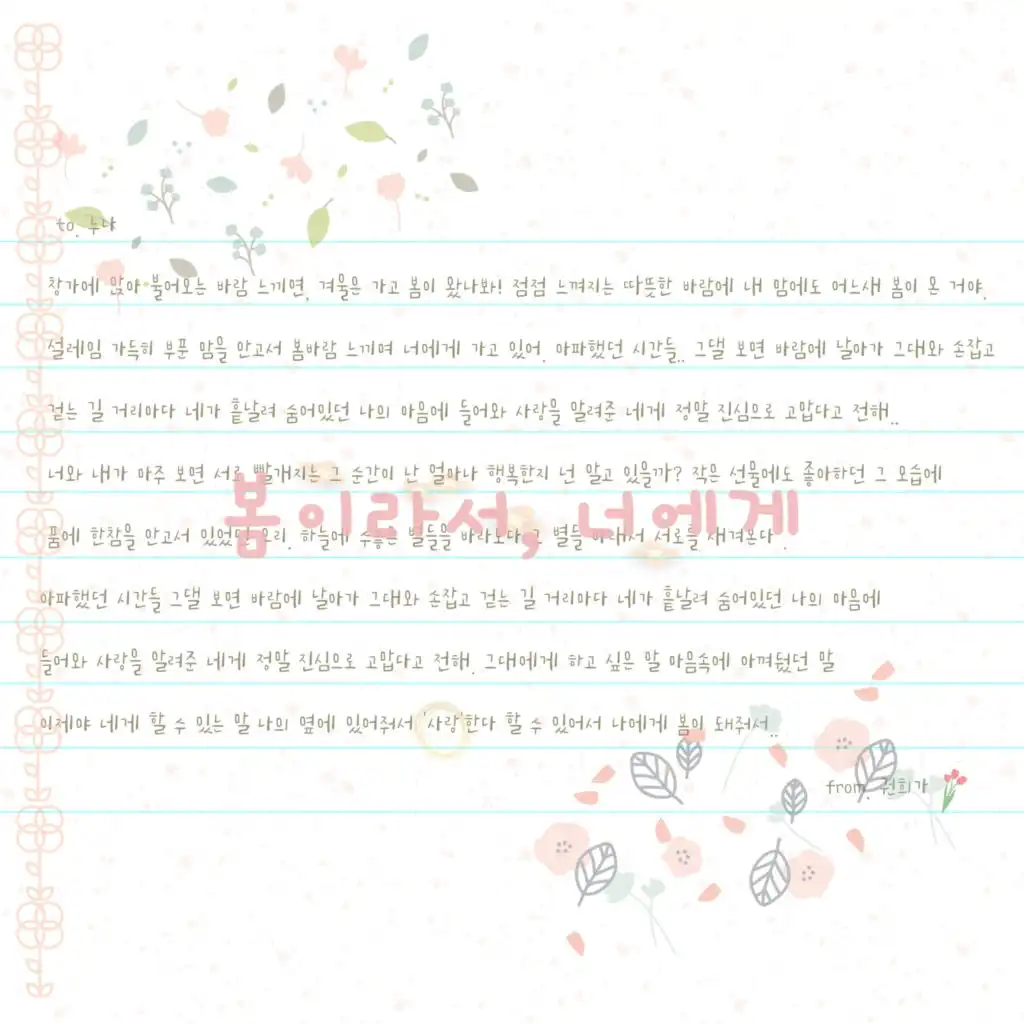 to. 누나
창가에 앉아 불어오는 바람 느끼면, 겨울은 가고 봄이 왔나봐! 점점 느껴지는 따뜻한 바람에 내 맘에도 어느새 봄이 온 거야.
설레임 가득히 부푼 맘을 안고서 봄바람 느끼며 너에게 가고 있어. 아파했던 시간들.. 그댈 보면 바람에 날아가 그대와 손잡고
걷는 길 거리마다 네가 흩날려 숨어있던 나의 마음에 들어와 사랑을 알려준 네게 정말 진심으로 고맙다고 전해..
너와 내가 마주 보면 서로 빨개지는 그 순간이 난 얼마나 행복한지 넌 알고 있을까? 작은 선물에도 좋아하던 그 모습에
품에 한참을 안고서 있었던 우리. 하늘에 수놓은 별들을 바라보다 그 별들 아래서 서로를 새겨본다 .
봄이라서, 너에게
아파했던 시간들 그댈 보면 바람에 날아가 그대와 손잡고 걷는 길 거리마다 네가 흩날려 숨어있던 나의 마음에
들어와 사랑을 알려준 네게 정말 진심으로 고맙다고 전해. 그대에게 하고 싶은 말 마음속에 아껴뒀던 말
이제야 네게 할 수 있는 말 나의 옆에 있어줘서 '사랑'한다 할 수 있어서 나에게 봄이 돼줘서..
from. 권희가